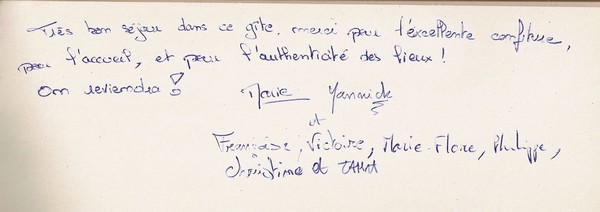 Très bon séjour dans ce gîte, merci pour l'excellente confiture,
pour l'accueil, et pour l'authenticité des lieux !
On reviendra !
Marie Yannick
et
Françoise, Victoire, Marie-Flore, Philippe,
Christine et